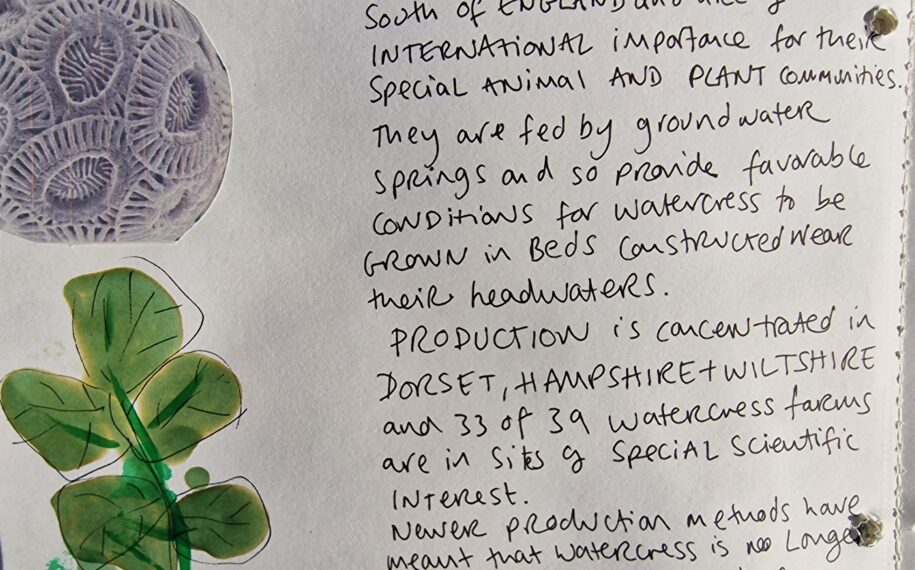 South of ENGLAND and are of
INTERNATIONAL importance for their
Special ANIMAL AND PLANT communities.
They are fed by groundwater
springs and so provide favorable
CONDITIONS for watercress to be
GROWN in Beds constructed near
their headwaters.
PRODUCTION is concentrated in
DORSET, HAMPSHIRE + WILTSHIRE
and 33 of 39 watercress farms
are in Sites of SPECIAL Scientific
INTEREST.
Newer production methods have
meant that watercress is no Longer